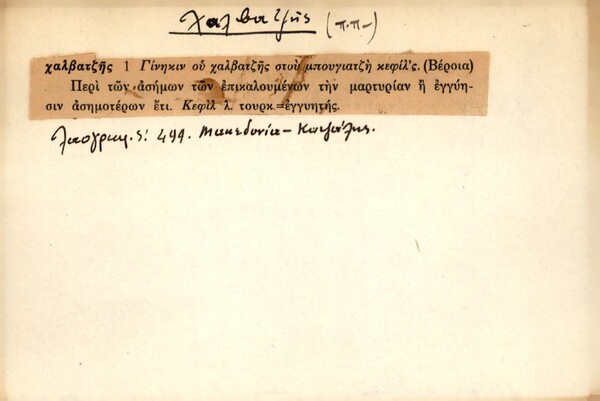 χαλβατζῆς (π.π-)
χαλβατζῆς 1 Γίνηκιν οὑ χαλβατζῆς στοὺ μπουγιατζῆ κεφίλ'ς. (Βέροια)
Περὶ τῶν ἀσήμων τῶν ἐπικαλουμένων τὴν μαρτυρίαν ἢ ἐγγύη-
σιν ἀσημοτέρων ἔτι. Κεφὶλ λ. τουρκ.=ἐγγυητής.
Λαογραφ. 5: 499. Μακεδονία -